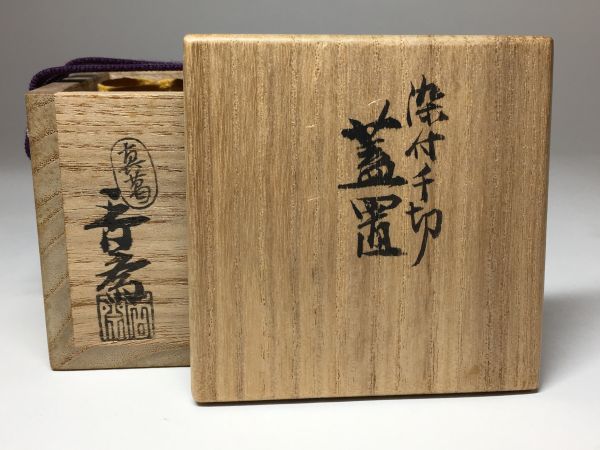 染付千切
蓋置
真葛
香斎